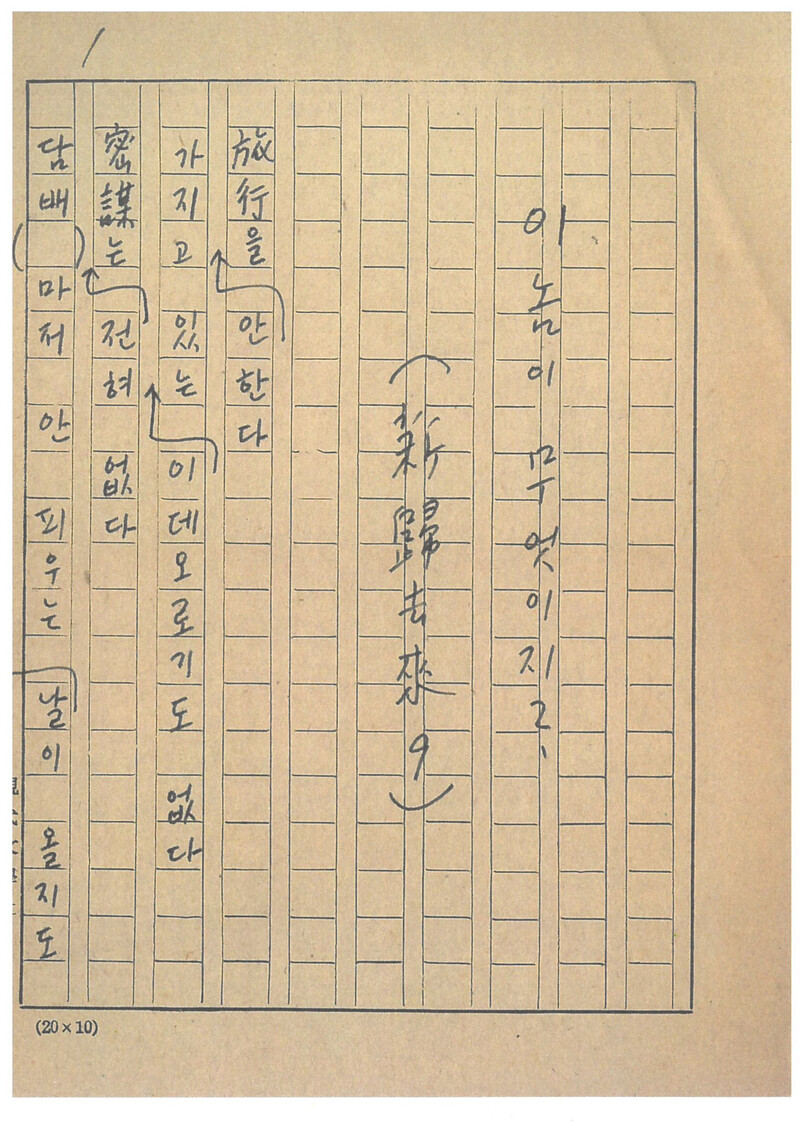 1
이놈이 무엇이지?
(新歸去來 9)
旅行을 안한다
가지고 있는 이데오로기도 없다
密謀는 전혀 없다
담배( )마저 안 피우는 날이 올지도
(20×10)